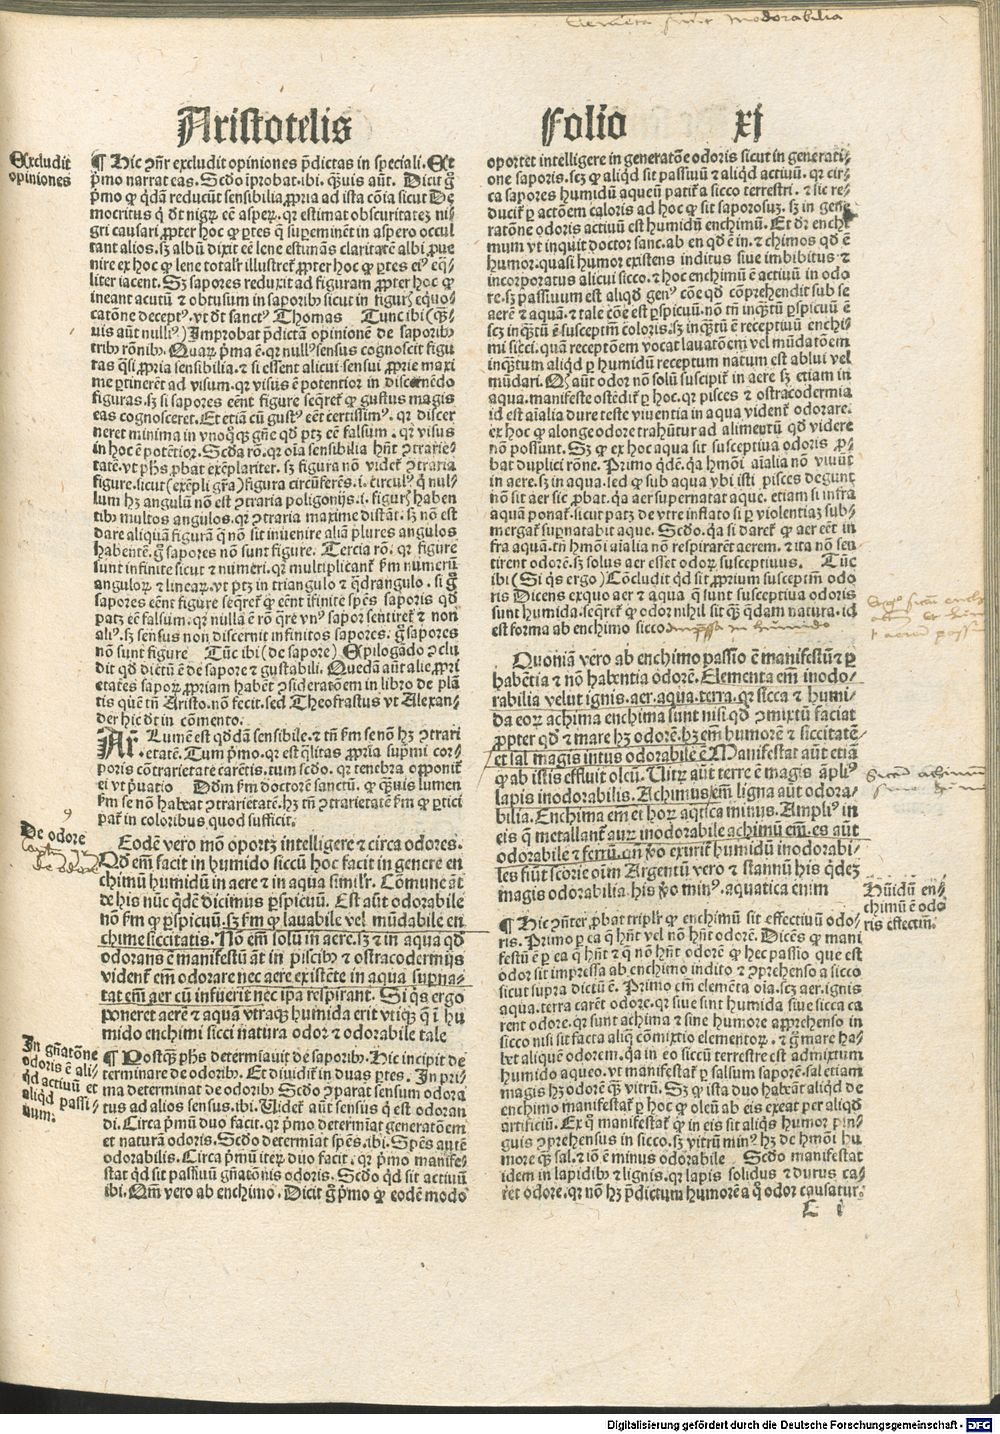 Elementa sunt inodorabilia
Aristotelis
Folio xj
Excludit
opiniones
¶ Hic ꝯñr excludit opiniones p̃dictas in speciali. Et
p̃mo narrat eas. Scd̃o ĩprobat. ibi. Qͣuis aũt. Dicit g̃
p̃mo ꝙ qͥdã reducũt sensibilia ꝓpria ad ista cõia sicut De
mocritus qͥ dt nigrꝝ eẽ asperꝝ. qꝛ estimat obscuritatez ni-
gri causari ꝓpter hoc ꝙ ꝑtes q̃ supeminẽt in aspero occul
tant alios. sꝫ albũ dixit eẽ lene estimãs claritatẽ albi ꝓue
nire ex hoc ꝙ lene totalr̃ illustret̃ ꝓpter hoc ꝙ ꝑtes eiꝰ eq̃-
liter iacent. Sꝫ sapores reduxit ad figuram ꝓpter hoc ꝙ
ineant acutũ ⁊ obtusum in saporibꝫ sicut in figurꝭ equo-
catõne deceptꝰ. vt dt sanctꝰ Thomas Tunc ibi (Qͣ-
uis aũt nulliꝰ) Improbat p̃dictã opinionẽ de saporibꝫ
tribꝫ rõnibꝫ. Quarꝝ p̃ma ẽ. qꝛ nullꝰ sensus cognoscit figu
ras qͣsi ꝓpria sensibilia. ⁊ si essent alicui sensui ꝓprie maxi
me ꝑtinerẽt ad visum. qꝛ visus ẽ potentior in discernẽdo
figuras. sꝫ si sapores eẽnt figure seqret̃ ꝙ gustus magis
eas cognosceret. Et etiã cũ gustꝰ eẽt certissimꝰ. qꝛ discer
neret minima in vnoqͦqꝫ gñe qd̃ ptꝫ eẽ falsum. qꝛ visus
in hoc ẽ potẽtior. Scd̃a rõ. qꝛ oĩa sensibilia hñt ꝯtrarie-
tatẽ. vt ph̃s ꝓbat exẽplariter. sꝫ figura nõ videt̃ ꝯtraria
figure. sicut (exẽpli gr̃a) figura circũferẽs. i. circulꝰ q̃ nul-
lum hꝫ angulũ nõ est ꝯtraria poligonijs. i. figurꝭ haben
tibꝫ multos angulos. qꝛ ꝯtraria maxime distãt. sꝫ nõ est
dare aliquã figurã q̃ nõ sit inuenire aliã plures angulos
habentẽ. g̃ sapores nõ sunt figure. Tercia rõ. qꝛ figure
sunt infinite sicut ⁊ numeri. qꝛ multiplicant̃ fm̃ numerũ
angulorꝝ ⁊ linearꝝ. vt ptꝫ in triangulo ⁊ qͣdrangulo. si g̃
sapores eẽnt figure seqret̃ ꝙ eẽnt ĩfinite spẽs saporis qd̃
patꝫ eẽ falsum. qꝛ nulla ẽ rõ qͣre vnꝰ sapor sentiret̃ ⁊ non
aliꝰ. sꝫ sensus non discernit infinitos sapores. g̃ sapores
nõ sunt figure Tũc ibi (de sapore) Epilogãdo ꝯclu
dit qd̃ dictũ ẽ de sapore ⁊ gustabili. Quedã aũt alie ꝓpri
etates saporꝝ ꝓpriam habẽt ꝯsideratõem in libro de plã
tis quẽ tñ Aristo. nõ fecit. sed Theofrastus vt Alexan-
der hic dt in cõmento.
Ar. Lumẽ est qd̃dã sensibile. ⁊ tñ fm̃ se nõ hꝫ ꝯtrari
etatẽ. Tum p̃mo. qꝛ est qͣlitas ꝓpria sup̃mi cor-
poris cõtrarietate carẽtis. tum scd̃o. qꝛ tenebra opponit̃
ei vt p̃uatio Dd̃m fm̃ doctorẽ sanctũ. ꝙ qͣuis lumen
fm̃ se nõ habeat ꝯtrarietatẽ. hꝫ tñ ꝯtrarietatẽ fm̃ ꝙ ꝑtici
pat̃ in coloribus quod sufficit.
De odore
Eodẽ vero mõ oportꝫ intelligere ⁊ circa odores.
Qd̃ em̃ facit in humido siccũ hoc facit in genere en
chimũ humidũ in aere ⁊ in aqua simil̃r. Cõmune aũt
de his nũc qͥdẽ dicimus ꝑspicuũ. Est aũt odorabile
nõ fm̃ ꝙ ꝑspicuũ. sꝫ fm̃ ꝙ lauabile vel mũdabile en
chime siccitatis. Nõ em̃ solũ in aere. sꝫ ⁊ in aqua qd̃
odorans ẽ manifestũ aũt in piscibꝫ ⁊ ostracodermijs
vident̃ em̃ odorare nec aere existẽte in aqua supna-
tat em̃ aer cũ infuerit nec ip̃a respirant. Si qͥs ergo
poneret aerẽ ⁊ aquã vtraqꝫ humida erit vtiqꝫ q̃ ĩ hu
mido enchimi sicci natura odor ⁊ odorabile tale
In gñatõne
odoris ẽ ali-
qd̃ actiuũ et
aliqd̃ passi-
uum.
¶ Postqͣꝫ ph̃s determiauit de saporibꝫ. Hic incipit de
terminare de odoribꝫ. Et diuidit̃ in duas ꝑtes. In pri-
ma determinat de odoribꝫ Scd̃o ꝯparat sensum odora
tus ad alios sensus. ibi. Videt̃ aũt sensus q̃ est odoran
di. Circa p̃mũ duo facit. qꝛ p̃mo determiat generatõem
et naturã odoris. Scd̃o determiat spẽs. ibi. Spẽs autẽ
odorabilis. Circa p̃mũ iterꝝ duo facit. qꝛ p̃mo manife-
stat qd̃ sit passiuũ gñatõnis odoris. Scd̃o qd̃ sit actiuũ
ibi. Qm̃ vero ab enchimo. Dicit g̃ p̃mo ꝙ eodẽ modo
oportet intelligere in generatõe odoris sicut in generati-
one saporis. scꝫ ꝙ aliqd̃ sit passiuũ ⁊ aliqd̃ actiuũ. qꝛ cir-
ca sapores humidũ aqueũ patit̃ a sicco terrestri. ⁊ sic re-
ducit̃ ꝑ actõem caloris ad hoc ꝙ sit saporosuꝫ. sꝫ in gene
ratõne odoris actiuũ est humidũ enchimũ. Et dr̃ enchi
mum vt inquit doctor sanc. ab en qd̃ ẽ in. ⁊ chimos qd̃ ẽ
humor. quasi humor existens inditus siue imbibitus ⁊
incorporatus alicui sicco. ⁊ hoc enchimũ ẽ actiuũ in odo
re. sꝫ passiuum est aliqd̃ genꝰ cõe qd̃ cõprehendit sub se
aerẽ ⁊ aquã. ⁊ tale cõe est ꝑspicuũ. nõ tñ inqͣtũ ꝑspicuũ ẽ
scꝫ inqͣtũ ẽ susceptiũ coloris. sꝫ inqͣtũ ẽ receptiuũ enchi-
mi sicci. quã receptõem vocat lauatõem vel mũdatõem
inqͣtum aliqd̃ ꝑ humidũ receptum natum est ablui vel
mũdari. Qꝫ aũt odor nõ solũ suscipit̃ in aere sꝫ etiam in
aqua. manifeste ostẽdit̃ ꝑ hoc. qꝛ pisces ⁊ ostracodermia
id est aĩalia dure teste viuentia in aqua vident̃ odorare.
ex hoc ꝙ alonge odore trahũtur ad alimentũ qd̃ videre
nõ possunt. Sꝫ ꝙ ex hoc aqua sit susceptiua odoris ꝓ-
bat duplici rõne. Primo qͥdẽ. qͣ hmõi aĩalia nõ viuũt
in aere. sꝫ in aqua. sed ꝙ sub aqua vbi isti pisces degunt
nõ sit aer sic ꝓbat. qͣ aer supernatat aque. etiam si infra
aquã ponat̃. sicut patꝫ de vtre inflato si ꝑ violentiaꝫ sub-
mergat̃ supnatabit aque. Scd̃o. qͣ si daret̃ ꝙ aer eẽt in
fra aquã. tñ hmõi aĩalia nõ respirarẽt aerem. ⁊ ita nõ sen
tirent odorẽ. sꝫ solus aer esset odorꝝ susceptiuus. Tũc
ibi (Si qͥs ergo) Cõcludit qd̃ sit ꝓprium susceptm̃ odo
ris Dicens ex quo aer ⁊ aqua q̃ sunt susceptiua odoris
sunt humida. seqret̃ ꝙ odor nihil sit qͣꝫ qͥdam natura. id
est forma ab enchimo sicco impressa in humido
Quoniã vero ab enchimo passio ẽ manifestũ ⁊ ꝑ
habẽtia ⁊ nõ habentia odorẽ. Elementa em̃ inodo-
rabilia velut ignis. aer. aqua. terra. qꝛ sicca ⁊ humi-
da eorꝝ achima enchima sunt nisi qd̃ ꝯmixtũ faciat
ꝓpter qd̃ ⁊ mare hꝫ odorẽ. hꝫ em̃ humorẽ ⁊ siccitatẽ
et sal magis intus odorabile ẽ Manifestat aũt etiã
ꝙ ab istis effluit oleũ. Vitrꝝ aũt terre ẽ magis ãpliꝰ
lapis inodorabilis. Achimus em̃ ligna aũt odora-
bilia. Enchima em̃ ei horꝝ aqͣtica minus. Ampliꝰ in
eis q̃ metallant̃ aurꝝ inodorabile achimũ em̃. es aũt
odorabile ⁊ ferrũ. qñ v̾o exurit̃ humidũ inodorabi-
les fiũt scorie oĩm Argentũ vero ⁊ stannũ his qͥdeꝫ
magis odorabilia. his v̾o minꝰ. aquatica enim
Hũidũ en-
chimũ ẽ odo
ris effectiũ.
¶ Hic ꝯñter ꝓbat triplr̃ ꝙ enchimũ sit effectiuũ odo-
ris. Primo ꝑ ea q̃ hñt vel nõ hñt odorẽ. Dicẽs ꝙ mani
festũ ẽ ꝑ ea q̃ hñt ⁊ q̃ nõ hñt odorẽ ꝙ hec passio que est
odor sit impressa ab enchimo indito ⁊ ꝯprehenso a sicco
sicut supra dictũ ẽ. Primo em̃ elemẽta oĩa. scꝫ aer. ignis
aqua. terra carẽt odore. qꝛ siue sint humida siue sicca ca
rent odore. qꝛ sunt achima ⁊ sine humore apprehenso in
sicco nisi sit facta aliqͣ cõmixtio elementorꝝ. ⁊ g̃ mare ha-
bet aliquẽ odorem. qͣ in eo siccũ terrestre est admixtum
humido aqueo. vt manifestat̃ ꝑ salsum saporẽ. sal etiam
magis hꝫ odorẽ qͣꝫ vitrũ. Sꝫ ꝙ ista duo habeãt aliqd̃ de
enchimo manifestat̃ ꝑ hoc ꝙ oleũ ab eis exeat per aliqd̃
artificiũ. Ex q̃ manifestat̃ ꝙ in eis sit aliqͥs humor pin-
guis ꝯprehensus in sicco. sꝫ vitrũ minꝰ hꝫ de hmõi hu
more qͣꝫ sal. ⁊ iõ ẽ minus odorabile Scd̃o manifestat
idem in lapidibꝫ ⁊ lignis. qꝛ lapis solidus ⁊ durus ca-
ret odore. qꝛ nõ hꝫ p̃dictum humorẽ a q̃ odor causatur.
C i
Digitalisierung gefördert durch die Deutsche Forschungsgemeinschaft - DFG